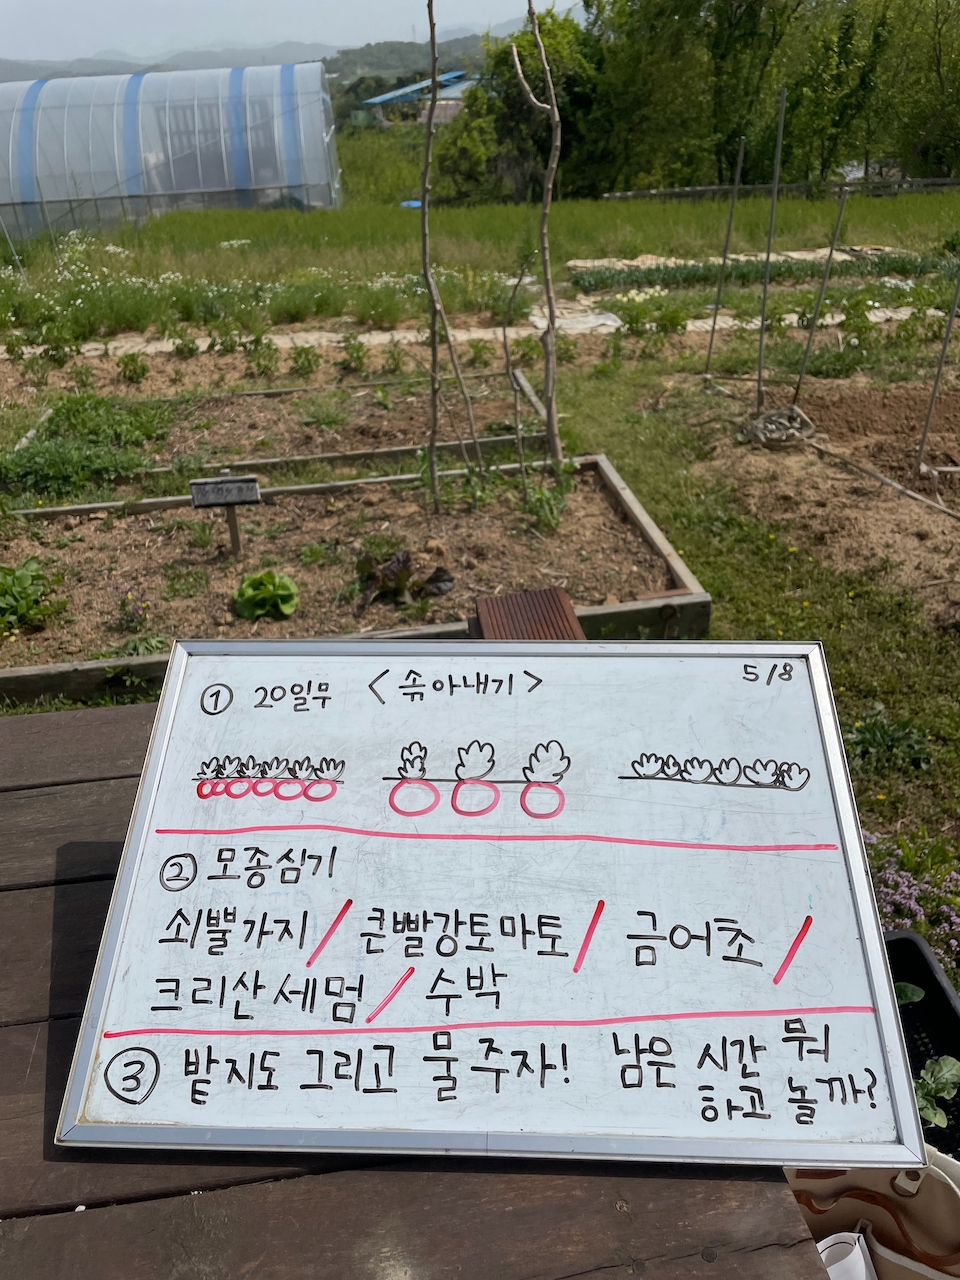 5/8
① 20일무 <솎아내기>
② 모종심기
쇠뿔가지 / 큰빨강토마토 / 금어초 /
크리산세멈 / 수박
③ 밭지도 그리고 물 주자! 남은 시간 뭐
하고 놀까?